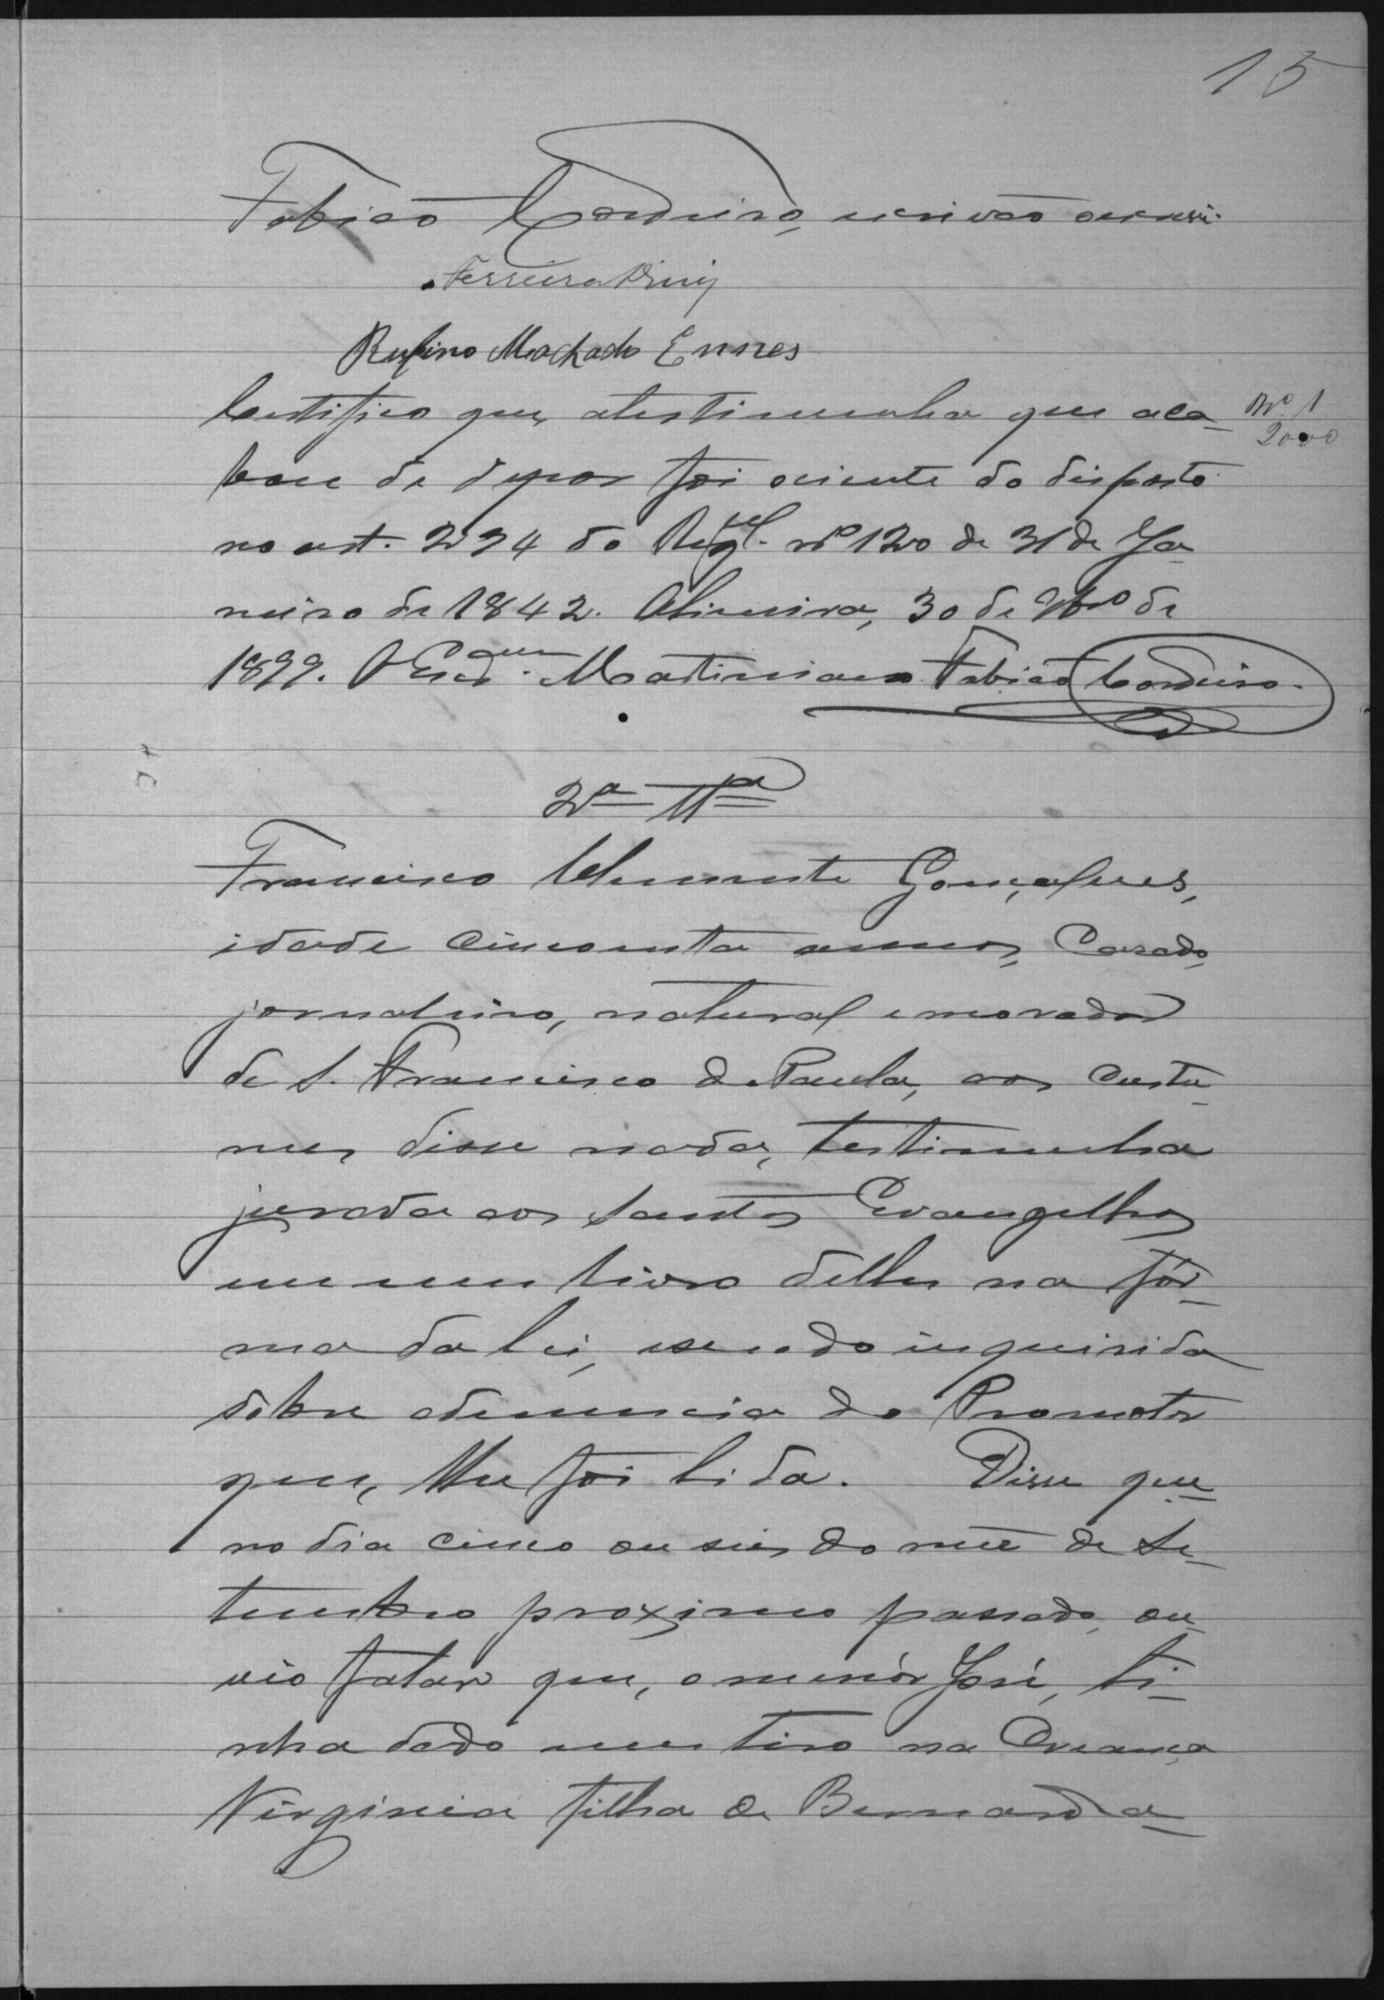 15
Fabião Cordeiro, escrivão escrevi.
Ferreira Diniz
Rufino Machado Ennes
Certifico que, a testimunha que aca-
bou de depor foi sciente do disposto
no art. 294 do Regl. nº 120 de 31 de Ja
neiro de 1842. 30 de 9bro de
1899. O Escram. Martimiano Fabião Cordeiro.
Nº 1
2000
2ª Tª
Francisco Clemente Gonçalves,
idade cincoenta annos, Casado,
jornaleiro, natural e morador
de S. Francisco de Paula, aos custu-
mes disse nada, testimunha
jurada aos Santos Evangelhos
em um livro delles na fór-
ma da lei, e sendo inquirida
sobre a denuncia do Promotor
que, lhe foi lida. Disse que
no dia cinco ou seis do mêz de Se-
tembro proximo passado, ou-
vio falar que, o menór José, ti-
nha dado um tiro na Creança
Virginia filha de Bernarda-